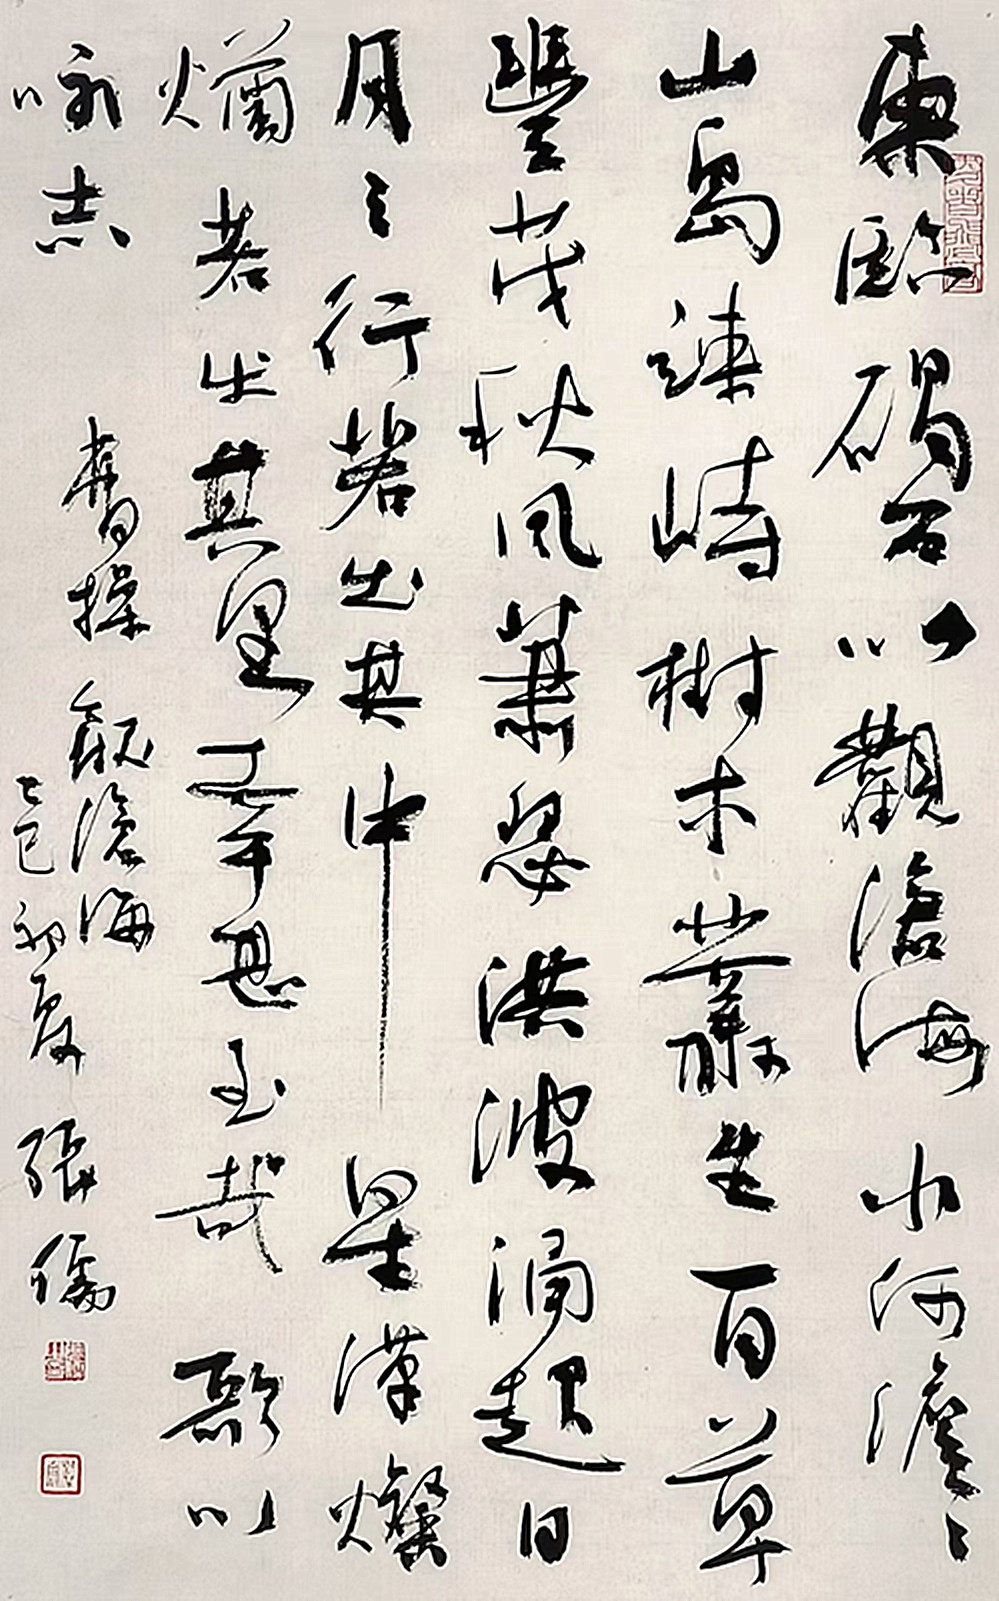 東臨碣石以觀滄海水何澹々
山島竦峙樹木叢生百草
豐茂秋風蕭瑟洪波涌起日
月之行若出其中星漢燦
爛若出其里幸甚至哉歌以
咏志
曹操觀滄海
乙巳初夏張儒